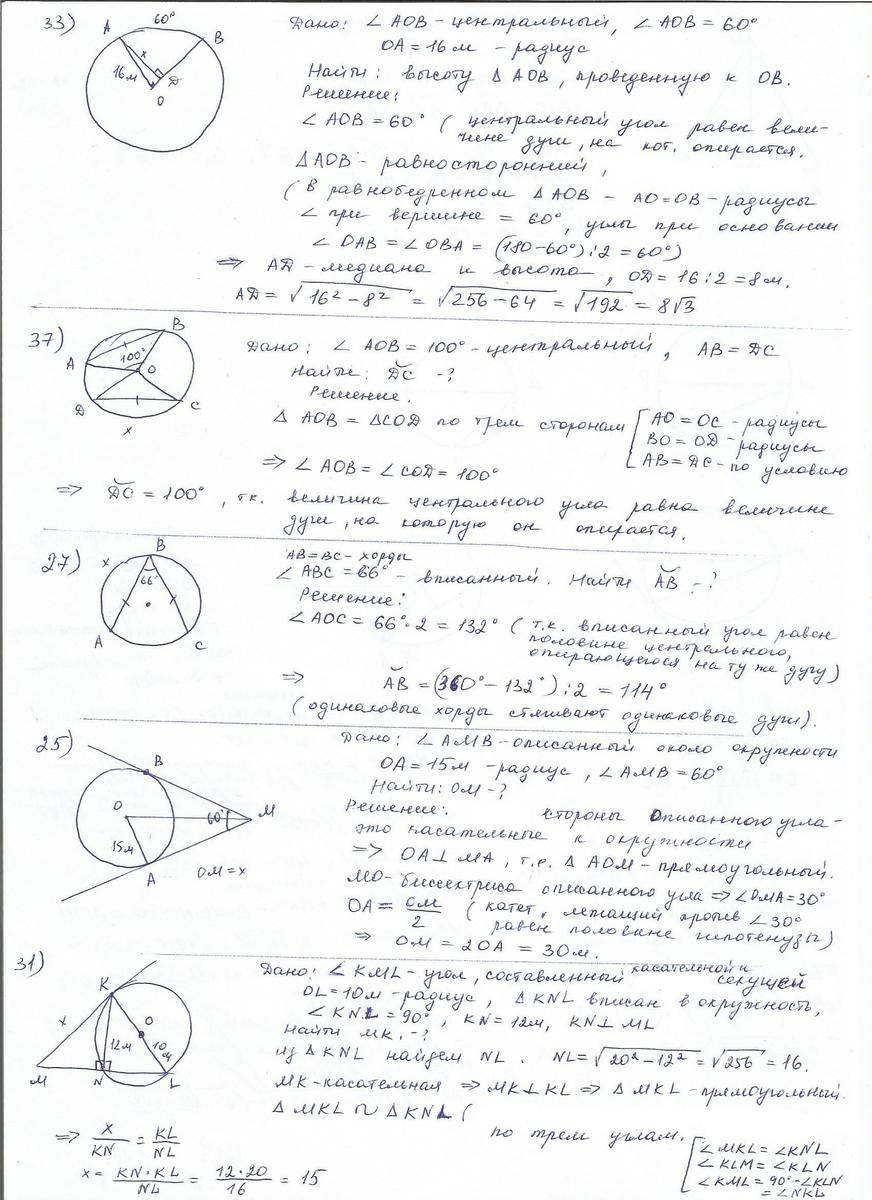 33)
A 60° B
x
16м D
O
Дано: ∠ AOB - центральный, ∠ AOB = 60°
OA = 16 м - радиус
Найти: высоту △ AOB, проведенную к OB.
Решение:
∠ AOB = 60° ( центральный угол равен вели-
чине дуги, на кот. опирается.
△AOB - равносторонний,
(В равнобедренном △ AOB - AO=OB-радиусы
∠ при вершине = 60°, углы при основании
∠ OAB = ∠ OBA = (180-60°):2 = 60°)
⇒ AD-медиана и высота, OD = 16:2 = 8м.
AD = √16² - 8² = √256 - 64 = √192 = 8√3
37)
B
A 100° O
D C
x
Дано: ∠ AOB = 100° - центральный, AB = DC
Найти: D͡C - ?
Решение.
△ AOB = △COD по трем сторонам [ AO = OC - радиусы
BO = OD - радиусы
AB = DC - по условию
⇒ ∠ AOB = ∠ COD = 100°
⇒ D͡C = 100°, т.к. величина центрального угла равна величине
дуги, на которую он опирается.
27)
B
x
66°
A C
AB = BC - хорды
∠ ABC = 66° - вписанный. Найти A͡B - ?
Решение:
∠ AOC = 66° · 2 = 132° ( т.к. вписанный угол равен
половине центрального,
опирающегося на ту же дугу)
⇒ A͡B = (360° - 132°) : 2 = 114°
( одинаковые хорды стягивают одинаковые дуги).
25)
B
O 60° M
15м
A OM = x
Дано: ∠ AMB - описанный около окружности
OA = 15м - радиус, ∠ AMB = 60°
Найти: OM - ?
Решение: стороны описанного угла-
это касательные к окружности
⇒ OA ⊥ MA, т.е. △ AOM - прямоугольный.
MO-биссектриса описанного угла ⇒ ∠OMA = 30°
OA = OM/2 ( катет, лежащий против ∠ 30°
равен половине гипотенузы)
⇒ OM = 2OA = 30м.
31)
K
x O
12м 10м
M N L
Дано: ∠ KML - угол, составленный касательной и секущей
OL = 10м - радиус, △ KNL вписан в окружность,
∠ KNL = 90°, KN = 12м, KN ⊥ ML
Найти MK. - ?
из △ KNL найдем NL. NL = √20² - 12² = √256 = 16.
MK-касательная ⇒ MK ⊥ KL ⇒ △ MKL - прямоугольный.
△ MKL ~ △ KNL (
по трем углам. [ ∠ MKL = ∠KNL
∠ KLM = ∠ KLN
∠ KML = 90° - ∠KLN
= ∠NKL
⇒ x/KN = KL/NL
x = KN·KL/NL = 12·20/16 = 15